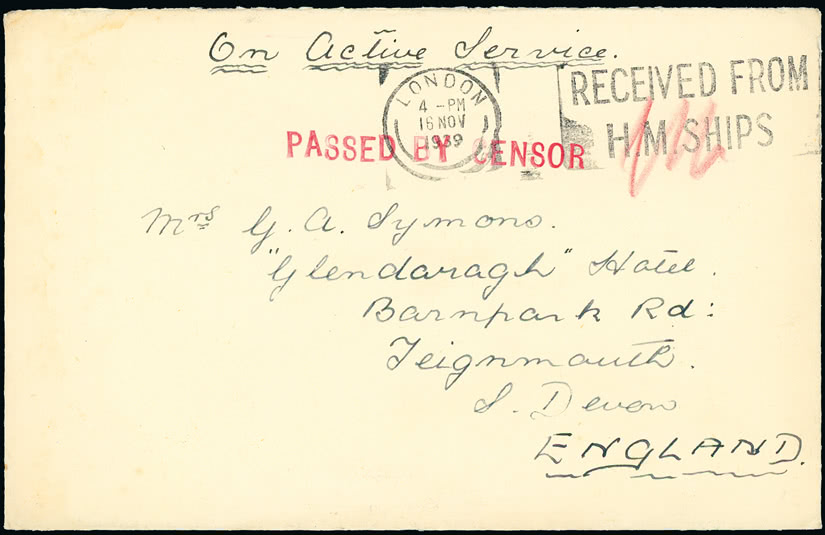 On Active Service.
LONDON
4 - PM
16 NOV
1939
RECEIVED FROM
H.M. SHIPS
PASSED BY CENSOR
Mrs G. A. Symons.
"Glendaragh" Hotel.
Barnpark Rd:
Teignmouth.
S. Devon
ENGLAND.